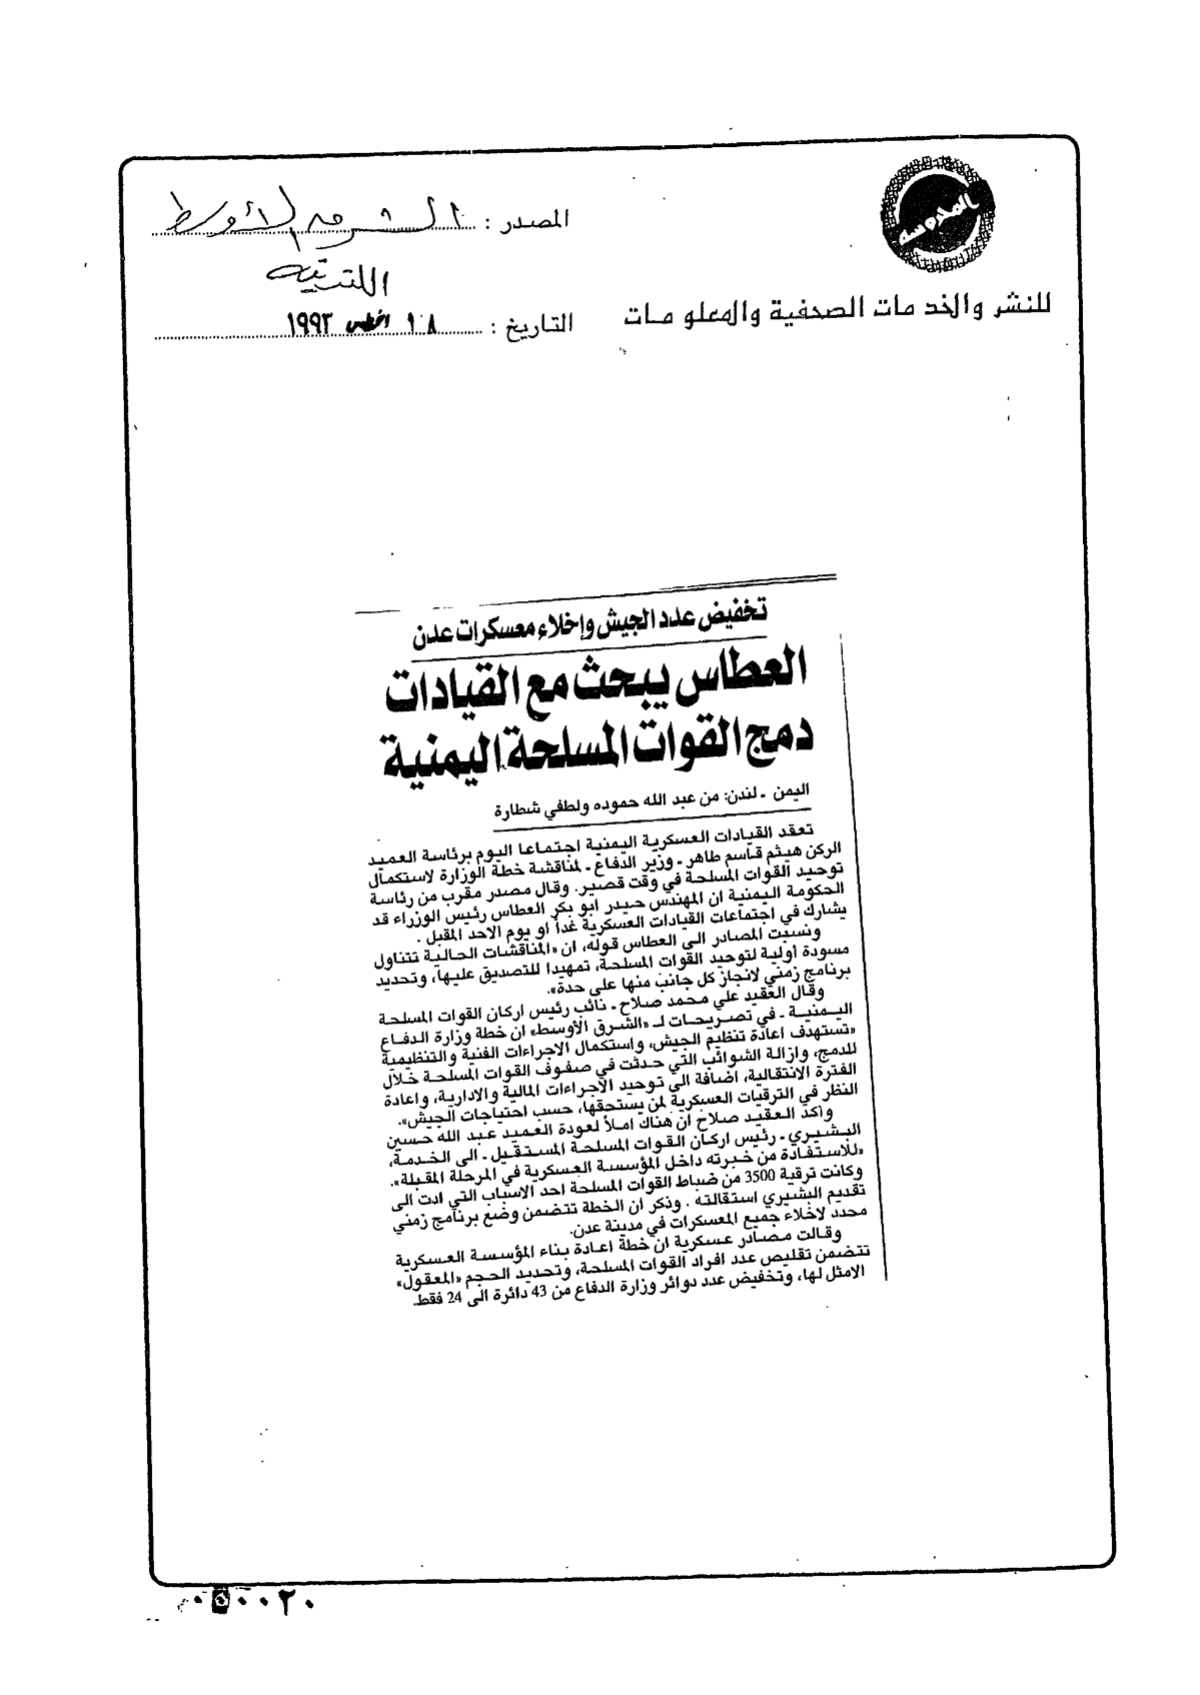 المصدر : الشرق الأوسط
اللندنية
للنشر والخدمات الصحفية والمعلومات
التاريخ : ١٠٨ اغسطس ١٩٩٣
تخفيض عدد الجيش وإخلاء معسكرات عدن
العطاس يبحث مع القيادات
دمج القوات المسلحة اليمنية
اليمن - لندن: من عبد الله حموده ولطفي شطارة
تعقد القيادات العسكرية اليمنية اجتماعا اليوم برئاسة العميد
الركن هيثم قاسم طاهر - وزير الدفاع - لمناقشة خطة الوزارة لاستكمال
توحيد القوات المسلحة في وقت قصير. وقال مصدر مقرب من رئاسة
الحكومة اليمنية ان المهندس حيدر ابو بكر العطاس رئيس الوزراء قد
يشارك في اجتماعات القيادات العسكرية غداً او يوم الاحد المقبل.
ونسبت المصادر الى العطاس قوله، ان «المناقشات الحالية تتناول
مسودة أولية لتوحيد القوات المسلحة، تمهيدا للتصديق عليها، وتحديد
برنامج زمني لانجاز كل جانب منها على حدة».
وقال العقيد علي محمد صلاح - نائب رئيس اركان القوات المسلحة
اليمنية - في تصريحات لـ «الشرق الأوسط» ان خطة وزارة الدفاع
«تستهدف اعادة تنظيم الجيش، واستكمال الاجراءات الفنية والتنظيمية
للدمج، وازالة الشوائب التي حدثت في صفوف القوات المسلحة خلال
الفترة الانتقالية، اضافة الى توحيد الاجراءات المالية والادارية، واعادة
النظر في الترقيات العسكرية لمن يستحقها، حسب احتياجات الجيش».
واكد العقيد صلاح ان هناك املاً لعودة العميد عبد الله حسين
البشيري - رئيس اركان القوات المسلحة المستقيل - الى الخدمة،
«للاستفادة من خبرته داخل المؤسسة العسكرية في المرحلة المقبلة».
وكانت ترقية 3500 من ضباط القوات المسلحة احد الاسباب التي ادت الى
تقديم البشيري استقالته . وذكر ان الخطة تتضمن وضع برنامج زمني
محدد لاخلاء جميع المعسكرات في مدينة عدن.
وقالت مصادر عسكرية ان خطة اعادة بناء المؤسسة العسكرية
تتضمن تقليص عدد افراد القوات المسلحة، وتحديد الحجم «المعقول»
الامثل لها، وتخفيض عدد دوائر وزارة الدفاع من 43 دائرة الى 24 فقط.